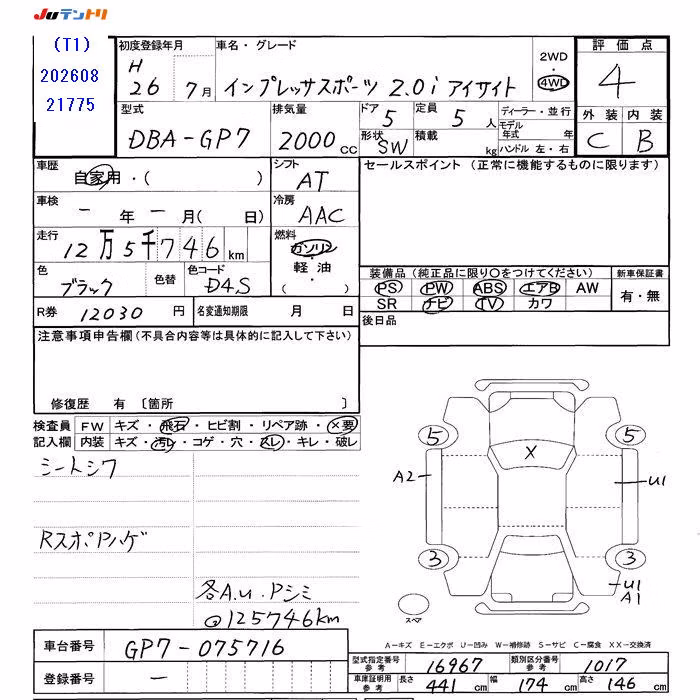 JUテントリ
(T1)
202608
21775
初度登録年月
H
26 7月
車名・グレード
インプレッサスポーツ 2.0i アイサイト
2WD
・
4WD
評価点
4
外装 内装
C B
型式
DBA-GP7
排気量
2000 cc
ドア
5
形状
SW
定員
5 人
積載
kg
ディーラー・並行
モデル
年式 年
ハンドル 左・右
車歴
自家用・( )
シフト
AT
セールスポイント (正常に機能するものに限ります)
車検
ー 年 ー 月( 日)
冷房
AAC
走行
12万5千746 km
燃料
ガソリン
・
軽油
・
( )
色
ブラック
色替
色コード
D4S
装備品 (純正品に限り○をつけてください)
PS PW ABS エアB AW
SR ナビ TV カワ
新車保証書
有・無
R券 12030 円
名変通知期限 月 日
後日品
注意事項申告欄(不具合内容等は具体的に記入して下さい)
修復歴 有 〔箇所 〕
検査員
記入欄
FW キズ・飛石・ヒビ割・リペア跡・×要
内装 キズ・汚レ・コゲ・穴・スレ・キレ・破レ
シートシワ
RスポPハゲ
各A.U.Pシミ
@125746km
5
5
X
A2
U1
3
3
U1
A1
スペア
A-キズ E-エクボ U-凹み W-補修跡 S-サビ C-腐食 XX-交換済
車台番号 GP7-075716
登録番号 ー
型式指定番号
参考
16967
類別区分番号
参考
1017
車庫証明用
参考
長さ 441 cm 幅 174 cm 高さ 146 cm